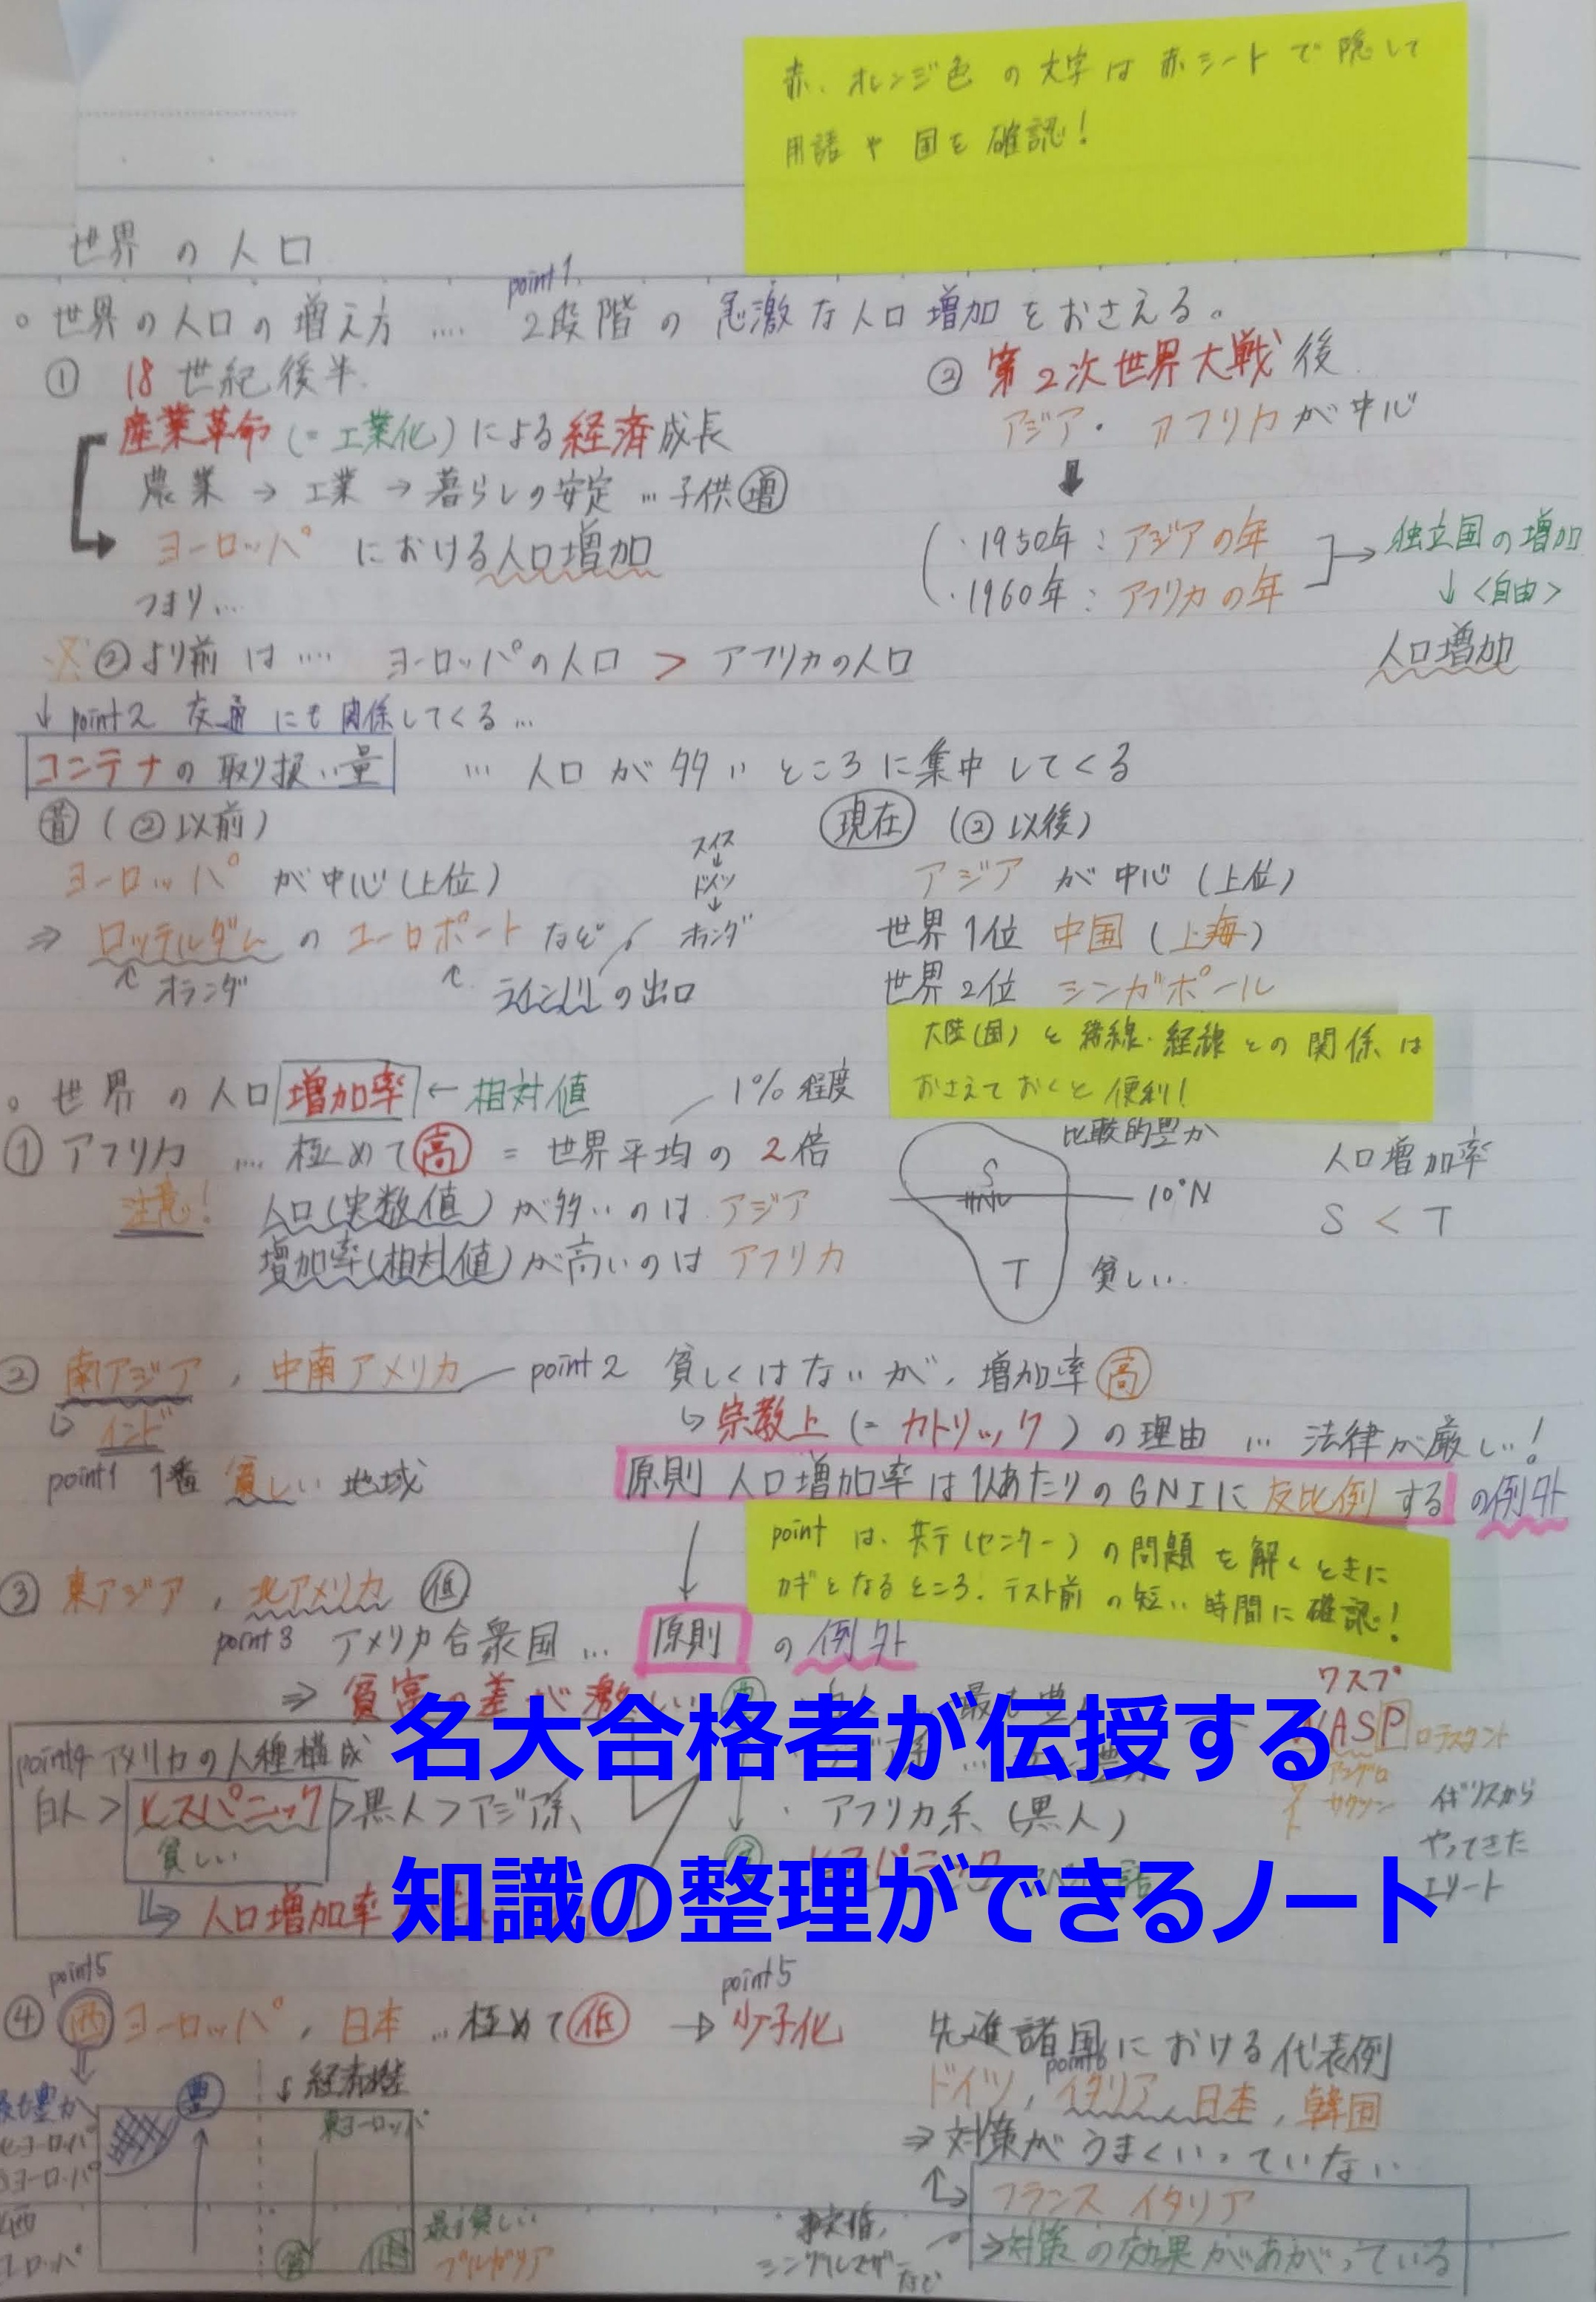 赤、オレンジ色の文字は赤シートで隠して
用語や国を確認！
世界の人口
○世界の人口の増え方 …. 2段階の急激な人口増加をおさえる。
point1.
① 18世紀後半
産業革命(=工業化)による経済成長
農業→工業→暮らしの安定…子供増
ヨーロッパにおける人口増加
つまり…
② 第2次世界大戦後
アジア・アフリカが中心
・1950年：アジアの年
・1960年：アフリカの年
独立国の増加
↓<自由>
人口増加
※②より前は…. ヨーロッパの人口 > アフリカの人口
↓point2 交通にも関係してくる…
コンテナの取り扱い量 … 人口が多いところに集中してくる
昔(②以前)
ヨーロッパが中心(上位)
⇒ロッテルダムのユーロポートなど
オランダ
ライン川の出口
スイス
↓
ドイツ
↓
オランダ
現在(②以後)
アジアが中心(上位)
世界1位 中国(上海)
世界2位 シンガポール
大陸(国)と緯線・経線との関係は
おさえておくと便利！
○世界の人口増加率←相対値
1%程度
①アフリカ …. 極めて高 = 世界平均の2倍
注意！ 人口(実数値)が多いのはアジア
増加率(相対値)が高いのはアフリカ
比較的豊か
S
10°N
T
貧しい.
人口増加率
S < T
②南アジア，中南アメリカ
point2 貧しくはないが，増加率高
↳インド
point1 1番貧しい地域
↳宗教上(=カトリック)の理由 … 法律が厳しい！
原則 人口増加率は1人あたりのGNIに反比例するの例外
point は、共テ(センター)の問題を解くときに
カギとなるところ．テスト前の短い時間に確認！
③東アジア，北アメリカ 低
point3 アメリカ合衆国 … 原則の例外
⇒貧富の差が激しい
最も豊
ワスプ
WASP
ロテスタント
アングロ
サクソン
ワイト
イギリスから
やってきた
エリート
point4 アメリカの人種構成
白人>ヒスパニック>黒人>アジア系
貧しい
↳人口増加率
・アフリカ系(黒人)
ヒスパニック
名大合格者が伝授する
知識の整理ができるノート
point5
④西ヨーロッパ，日本 …極めて低
point5
→少子化
↓経済格
豊
東ヨーロッパ
最も豊か
北ヨーロッパ
西
ヨーロッパ
貧
最も貧しい
ブルガリア
先進諸国における代表例
point6
ドイツ，イタリア，日本，韓国
⇒対策がうまくいっていない
フランス イタリア
⇒対策の効果があがっている
事実婚，
シングルマザー
など